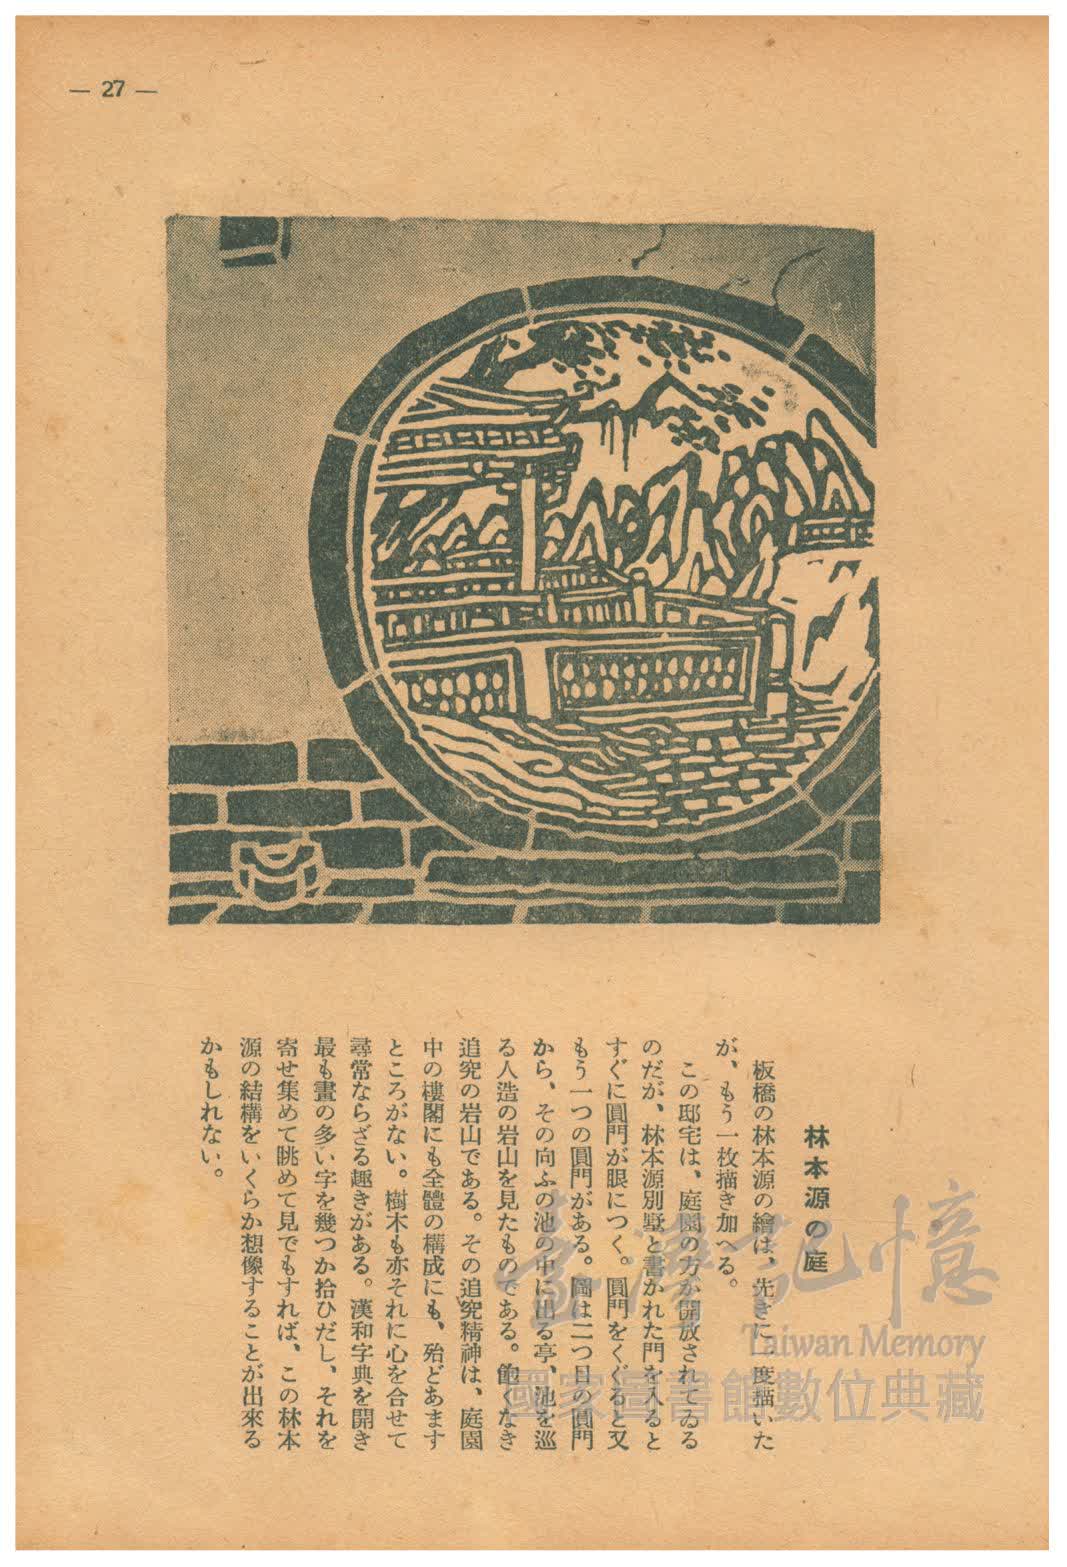 — 27 —
林本源の庭
板橋の林本源の繪は、先きに一度描いた
が、もう一枚描き加へる。
この邸宅は、庭園の方が開放されてゐる
のだが、林本源別墅と書かれた門を入ると
すぐに圓門が眼につく。圓門をくぐると又
もう一つの圓門がある。圖は二つ目の圓門
から、その向ふの池の中に出る亭、池を巡
る人造の岩山を見たものである。飽くなき
追究の岩山である。その追究精神は、庭園
中の樓閣にも全體の構成にも、殆どあます
ところがない。樹木も亦それに心を合せて
尋常ならざる趣きがある。漢和字典を開き
最も畫の多い字を幾つか拾ひだし、それを
寄せ集めて眺めて見でもすれば、この林本
源の結構をいくらか想像することが出來る
かもしれない。
臺灣記憶
Taiwan Memory
國家圖書館數位典藏